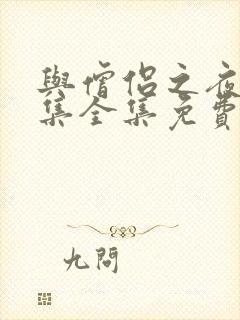 與僧侶之夜
集全集免費
九問